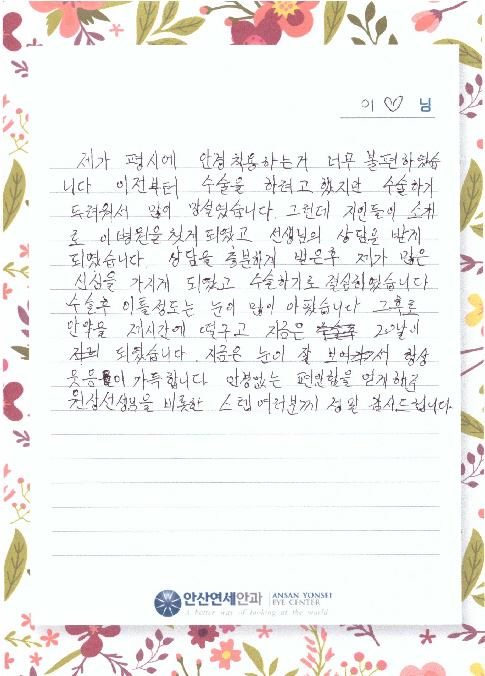 이 ♡ 님
제가 평시에 안경착용하는게 너무 불편하였습
니다 이전부터 수술을 하려고 했지만 수술하기
두려워서 많이 망설였습니다. 그런데 지인들의 소개
로 이병원을 찾게 되였고 선생님의 상담을 받게
되였습니다. 상담을 충분하게 받은후 제가 많은
신심을 가지게 되였고 수술하기로 결심하였습니다
수술후 이틀정도는 눈이 많이 아팠습니다 그후로
안약을 제시간에 떨구고 지금은 20날이
되였습니다 지금은 눈이 잘 보여서 항상
웃음이 가득합니다 안경없는 편안함을 얻게해준
원장선생님을 비롯한 스텝여러분께 정말 감사드립니다
안산연세안과 ANSAN YONSEI
EYE CENTER
A better way of looking at the world